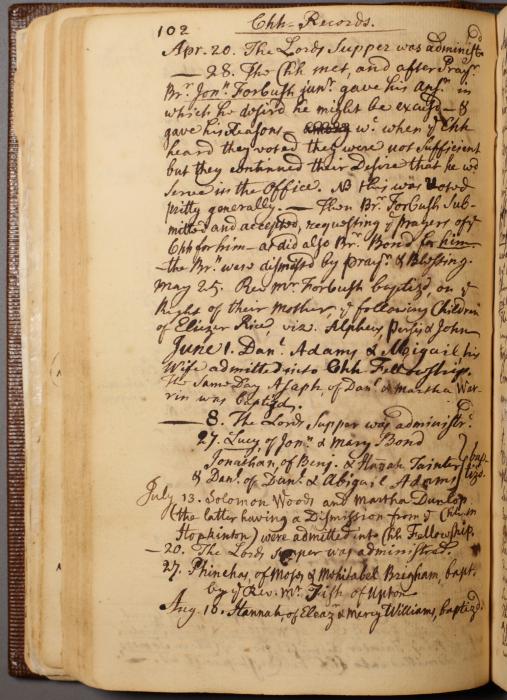 102 Chh= Records.
Apr. 20. The Lords Supper was administd
— 28. The Chh met, and after Prayr
Br. Jonn Forbush junr. gave his Ansr. in
which he desir'd he might be excus'd — &
gave his Reasons wc. when ye Chh
heard they voted they were not sufficient
but they continued their Desire that he wd
Serve in the Office. NB this was Voted
pritty generally. — Then Br. Forbush Sub-
mitted and accepted, requesting ye Prayers of ye
Chh for him — as did also Br. Bond for him —
the Brn were dismiss'd by prayr. & Blessing.
May 25. Revd Mr. Forbush baptiz'd, on ye
Right of their Mother, ye following Children
of Eliezer Rice, viz. Alpheus, Persis & John
June 1. Danl. Adams & Abigail his
Wife admitted into Chh Fellowship.
The Same Day Asaph of Danl. & Martha War-
rin was baptizd.
— 8. The Lords Supper was administrd.
27. Lucy, of Jonn. & Mary Bond
Jonathan, of Benj. & Hanah Tainter
& Danl. of Danl. & Abigail Adams } bap-
tizd.
July 13. Solomon Woods and Martha Dunlop
(the latter having a Dismission from ye Chh in
Hopkinton) were admitted into Chh Fellowship.
— 20. The Lords Supper was administrd.
27. Phinehas, of Moses & Mehitabel Brigham, bapt.
by ye Rev. Mr. Fish of Upton
Aug. 10. Hannah, of Eleazr & Mercy Williams, baptizd.